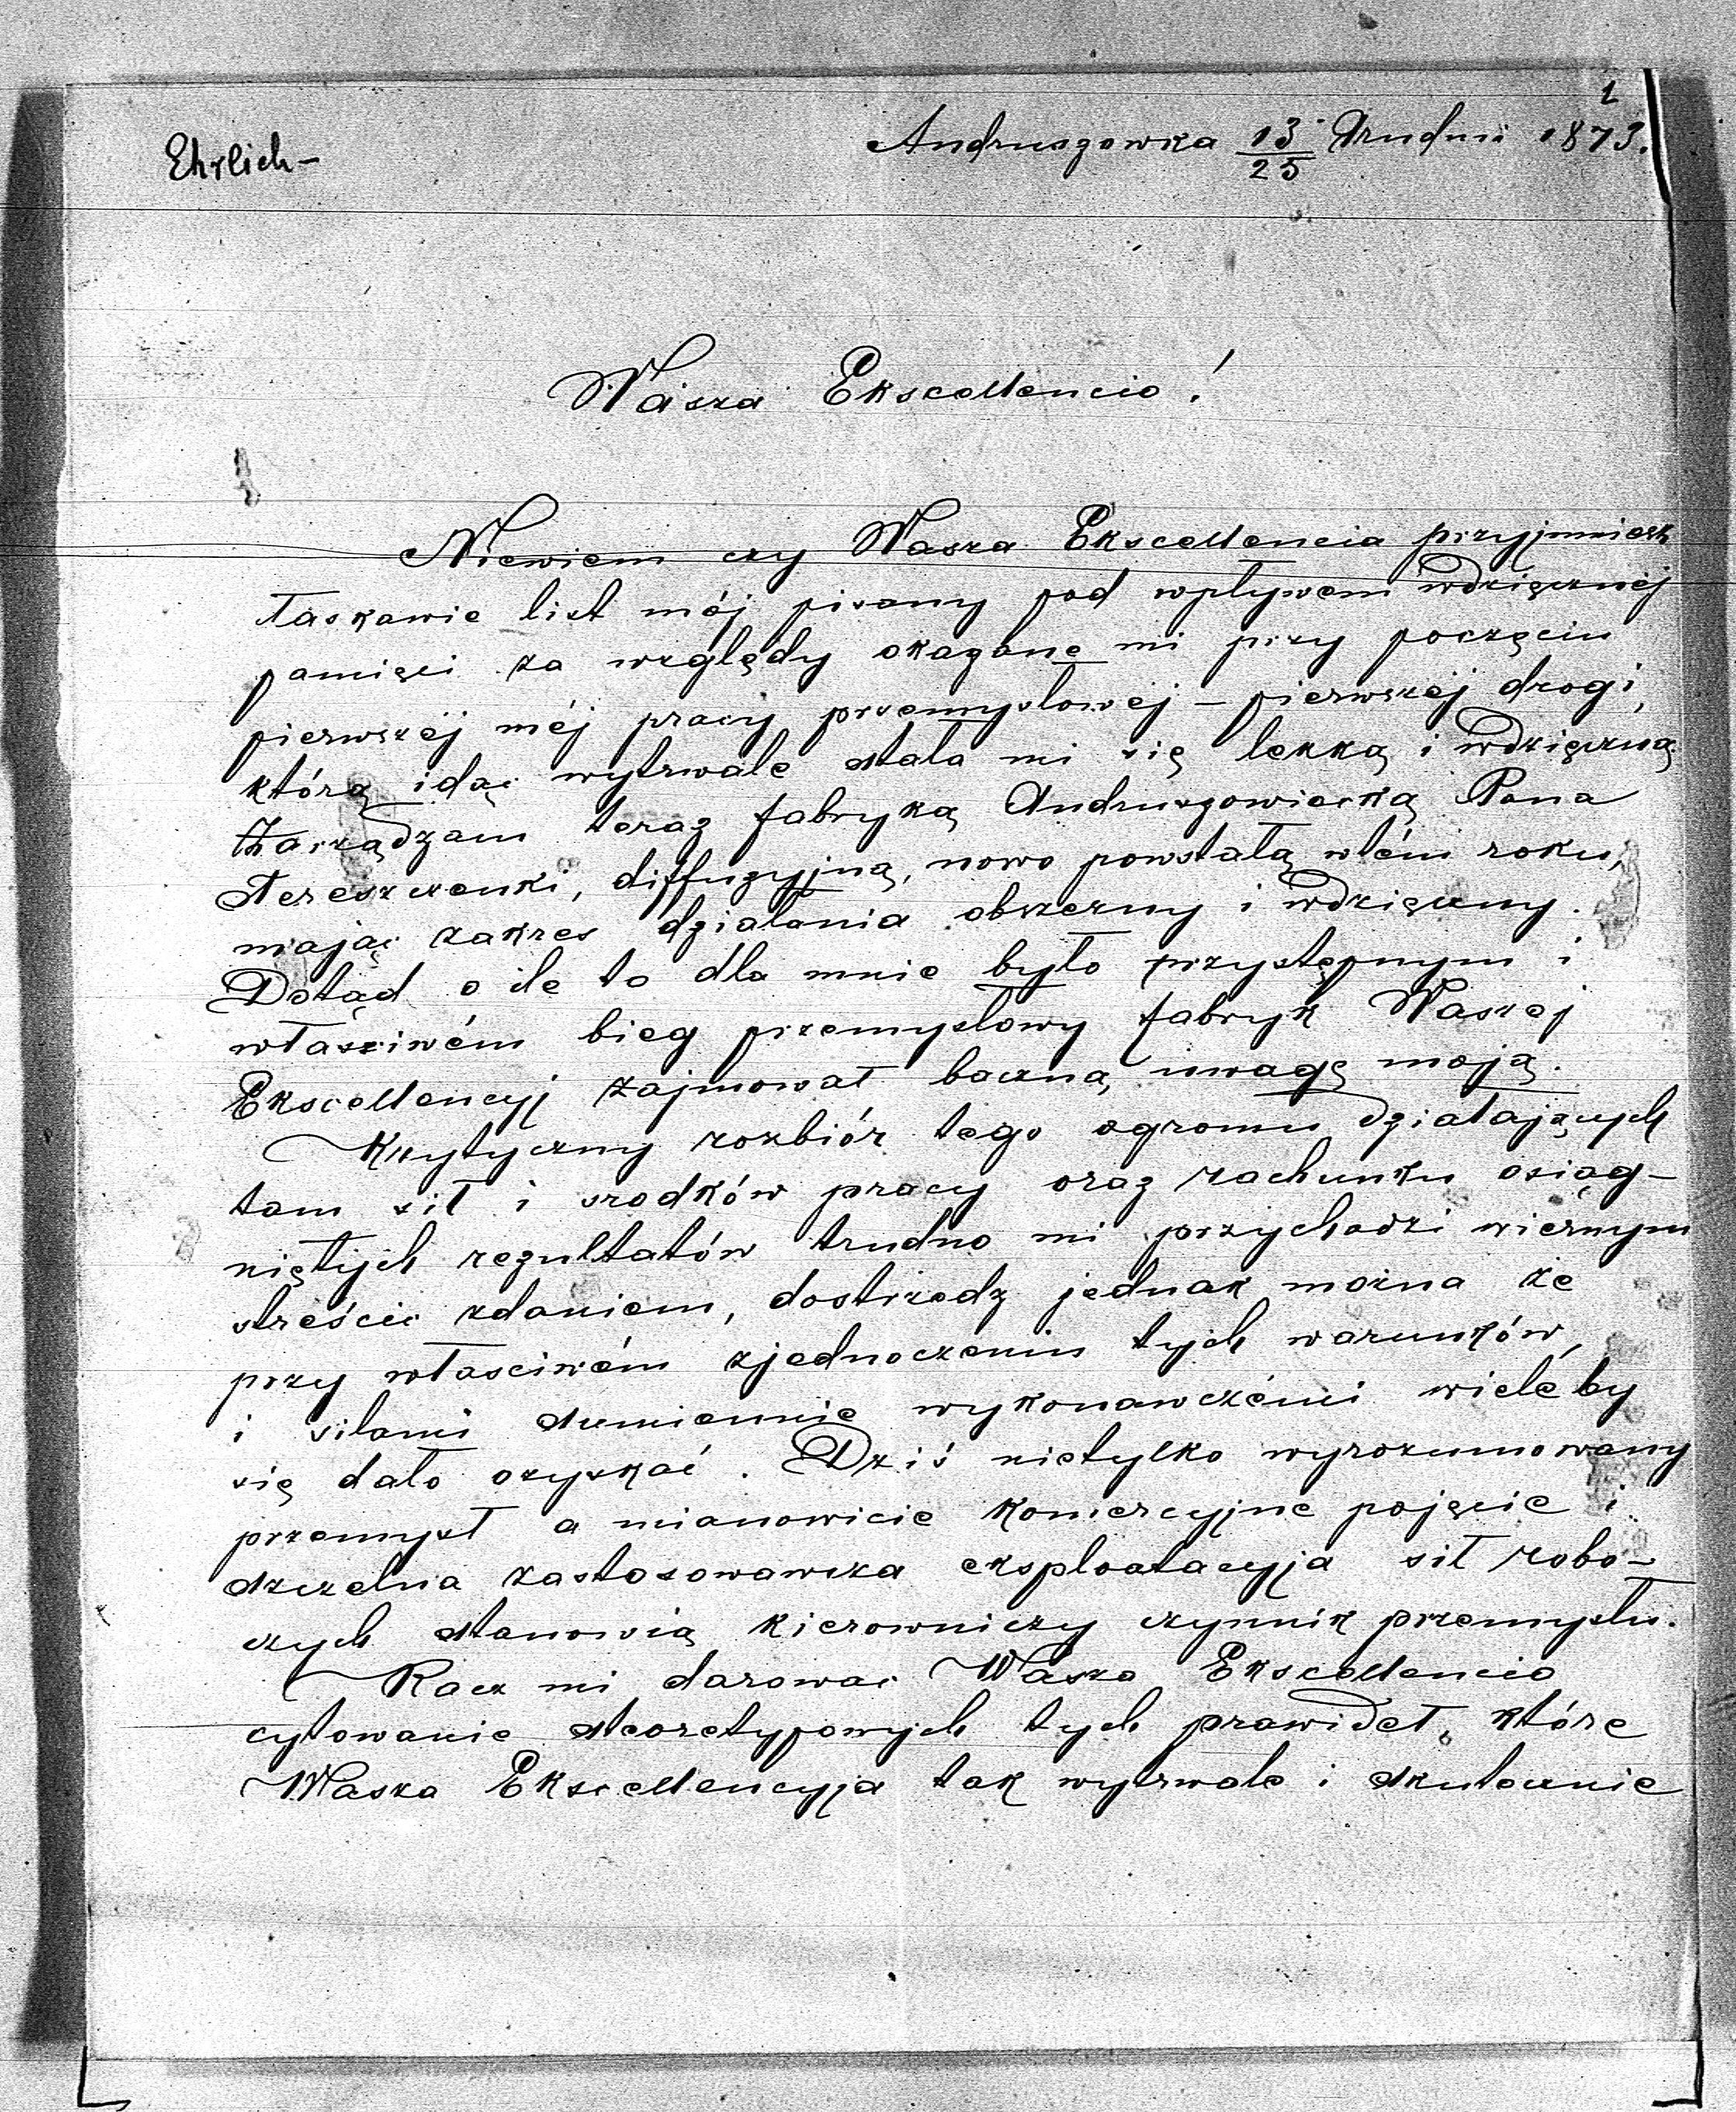 1
Ehrlich –
Andruszowka 13/25 Grudni 1873.
Wasza Ekscellencio!
Niewiem czy Wasza Ekscellencia przyjmiesz
łaskawie list mój pisany pod wpływem wdzięcznéj
pamięci za względy okazane mi przy poczęciu
pierwszéj méj pracy przemysłowéj – pierwszéj drogi,
którą idąc wytrwale stała mi się lekką i wdzięczną
Zarządzam teraz fabryką Andruszowiecką Pana
Tereszczenki, diffuzyjną, nowo powstałą wtém roku,
mając zakres działania obszerny i wdzięczny.
Dotąd o ile to dla mnie było przystępnym i
właściwém bieg przemysłowy fabryk Waszej
Ekscellencyj zajmował baczną uwagę moją.
Krytyczny rozbiór tego ogromu działających
tam sił i srodków pracy oraz rachunku osiąg-
niętych rezultatów trudno mi przychodzi wiernym
streścić zdaniem, dostrzedz jednak można że
przy własciwém zjednoczeniu tych warunków,
i siłami sumiennie wykonawczémi wieleby
się dało ozyskać. Dziś nietylko wyrozumowany
przemysł a mianowicie komercyjne pojęcie i
dzielna zastosowawcza eksploatacyja sił robo-
czych stanowią kierowniczy czynnik przemysłu.
Racz mi darować Wasza Ekscellencio
cytowanie steoretypowych tych prawideł, które
Wasza Ekscellencyja tak wytrwale i skutecznie